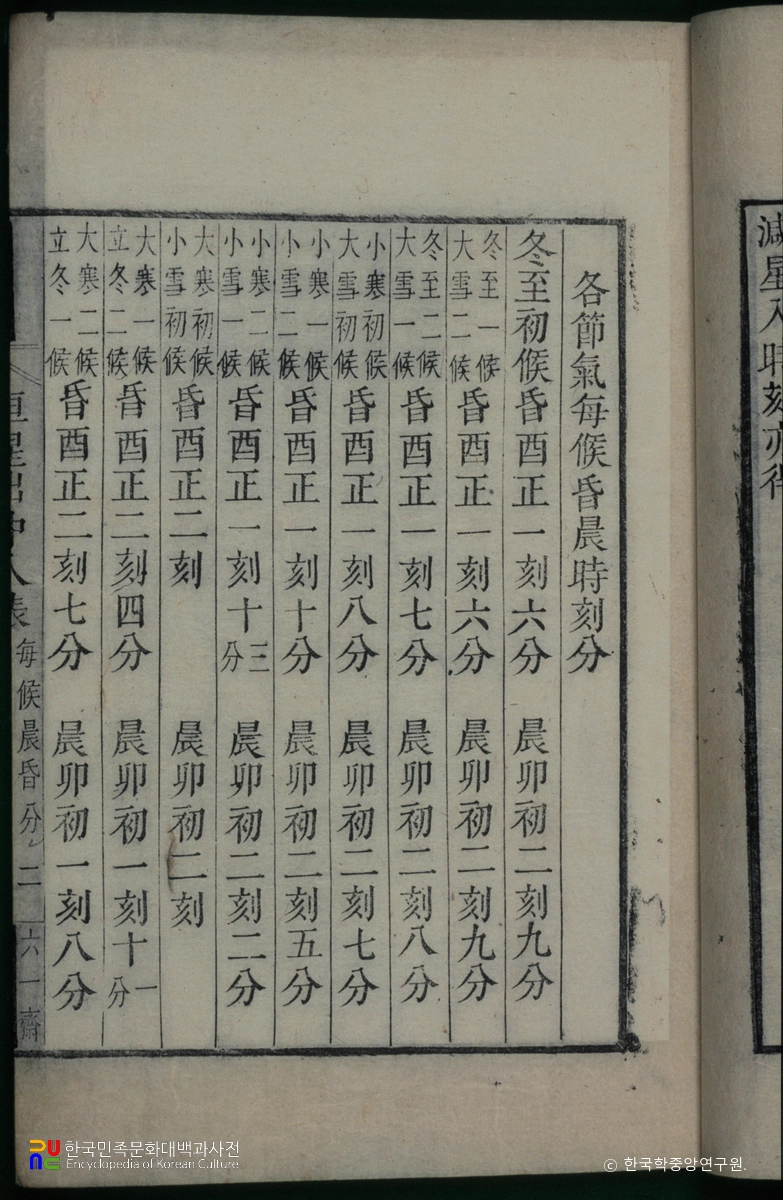 減星入時刻亦得
各節氣每候昏晨時刻分
冬至初候昏酉正一刻六分 晨卯初二刻九分
冬至一候
大雪二候
昏酉正一刻六分 晨卯初二刻九分
冬至二候
大雪一候
昏酉正一刻七分 晨卯初二刻八分
小寒初候
大雪初候
昏酉正一刻八分 晨卯初二刻七分
小寒一候
小雪二候
昏酉正一刻十分 晨卯初二刻五分
小寒二候
小雪一候
昏酉正一刻十三分 晨卯初二刻二分
大寒初候
小雪初候
昏酉正二刻 晨卯初二刻
大寒一候
立冬二候
昏酉正二刻四分 晨卯初一刻十一分
大寒二候
立冬一候
昏酉正二刻七分 晨卯初一刻八分
恒星出中入表 每候晨昏分 二 六一齋
한국민족문화대백과사전
Encyclopedia of Korean Culture
© 한국학중앙연구원.